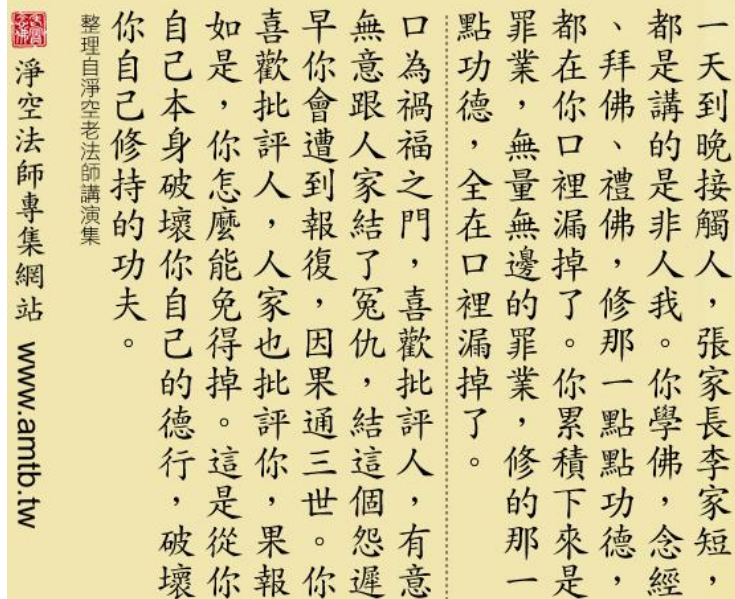 一天到晚接觸人，張家長李家短，
都是講的是非人我。你學佛，念經
、拜佛、禮佛，修那一點點功德，
都在你口裡漏掉了。你累積下來是
罪業，無量無邊的罪業，修的那一
點功德，全在口裡漏掉了。
口為禍福之門，喜歡批評人，有意
無意跟人家結了冤仇，結這個怨遲
早你會遭到報復，因果通三世。你
喜歡批評人，人家也批評你，果報
如是，你怎麼能免得掉。這是從你
自己本身破壞你自己的德行，破壞
你自己修持的功夫。
整理自淨空老法師講演集
淨空法師專集網站 www.amtb.tw